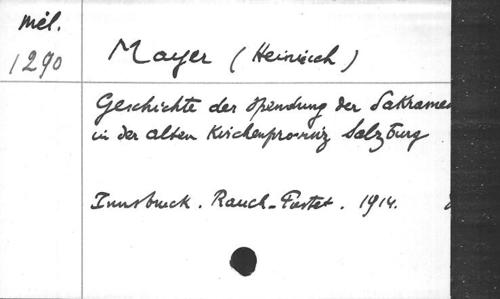 Mél.
1290
Mayer (Heinrich)
Geschichte der Spendung der Sakrame
in der alten Kirchenprovinz Salzburg
Innsbruck. Rauch-Pustet. 1914.